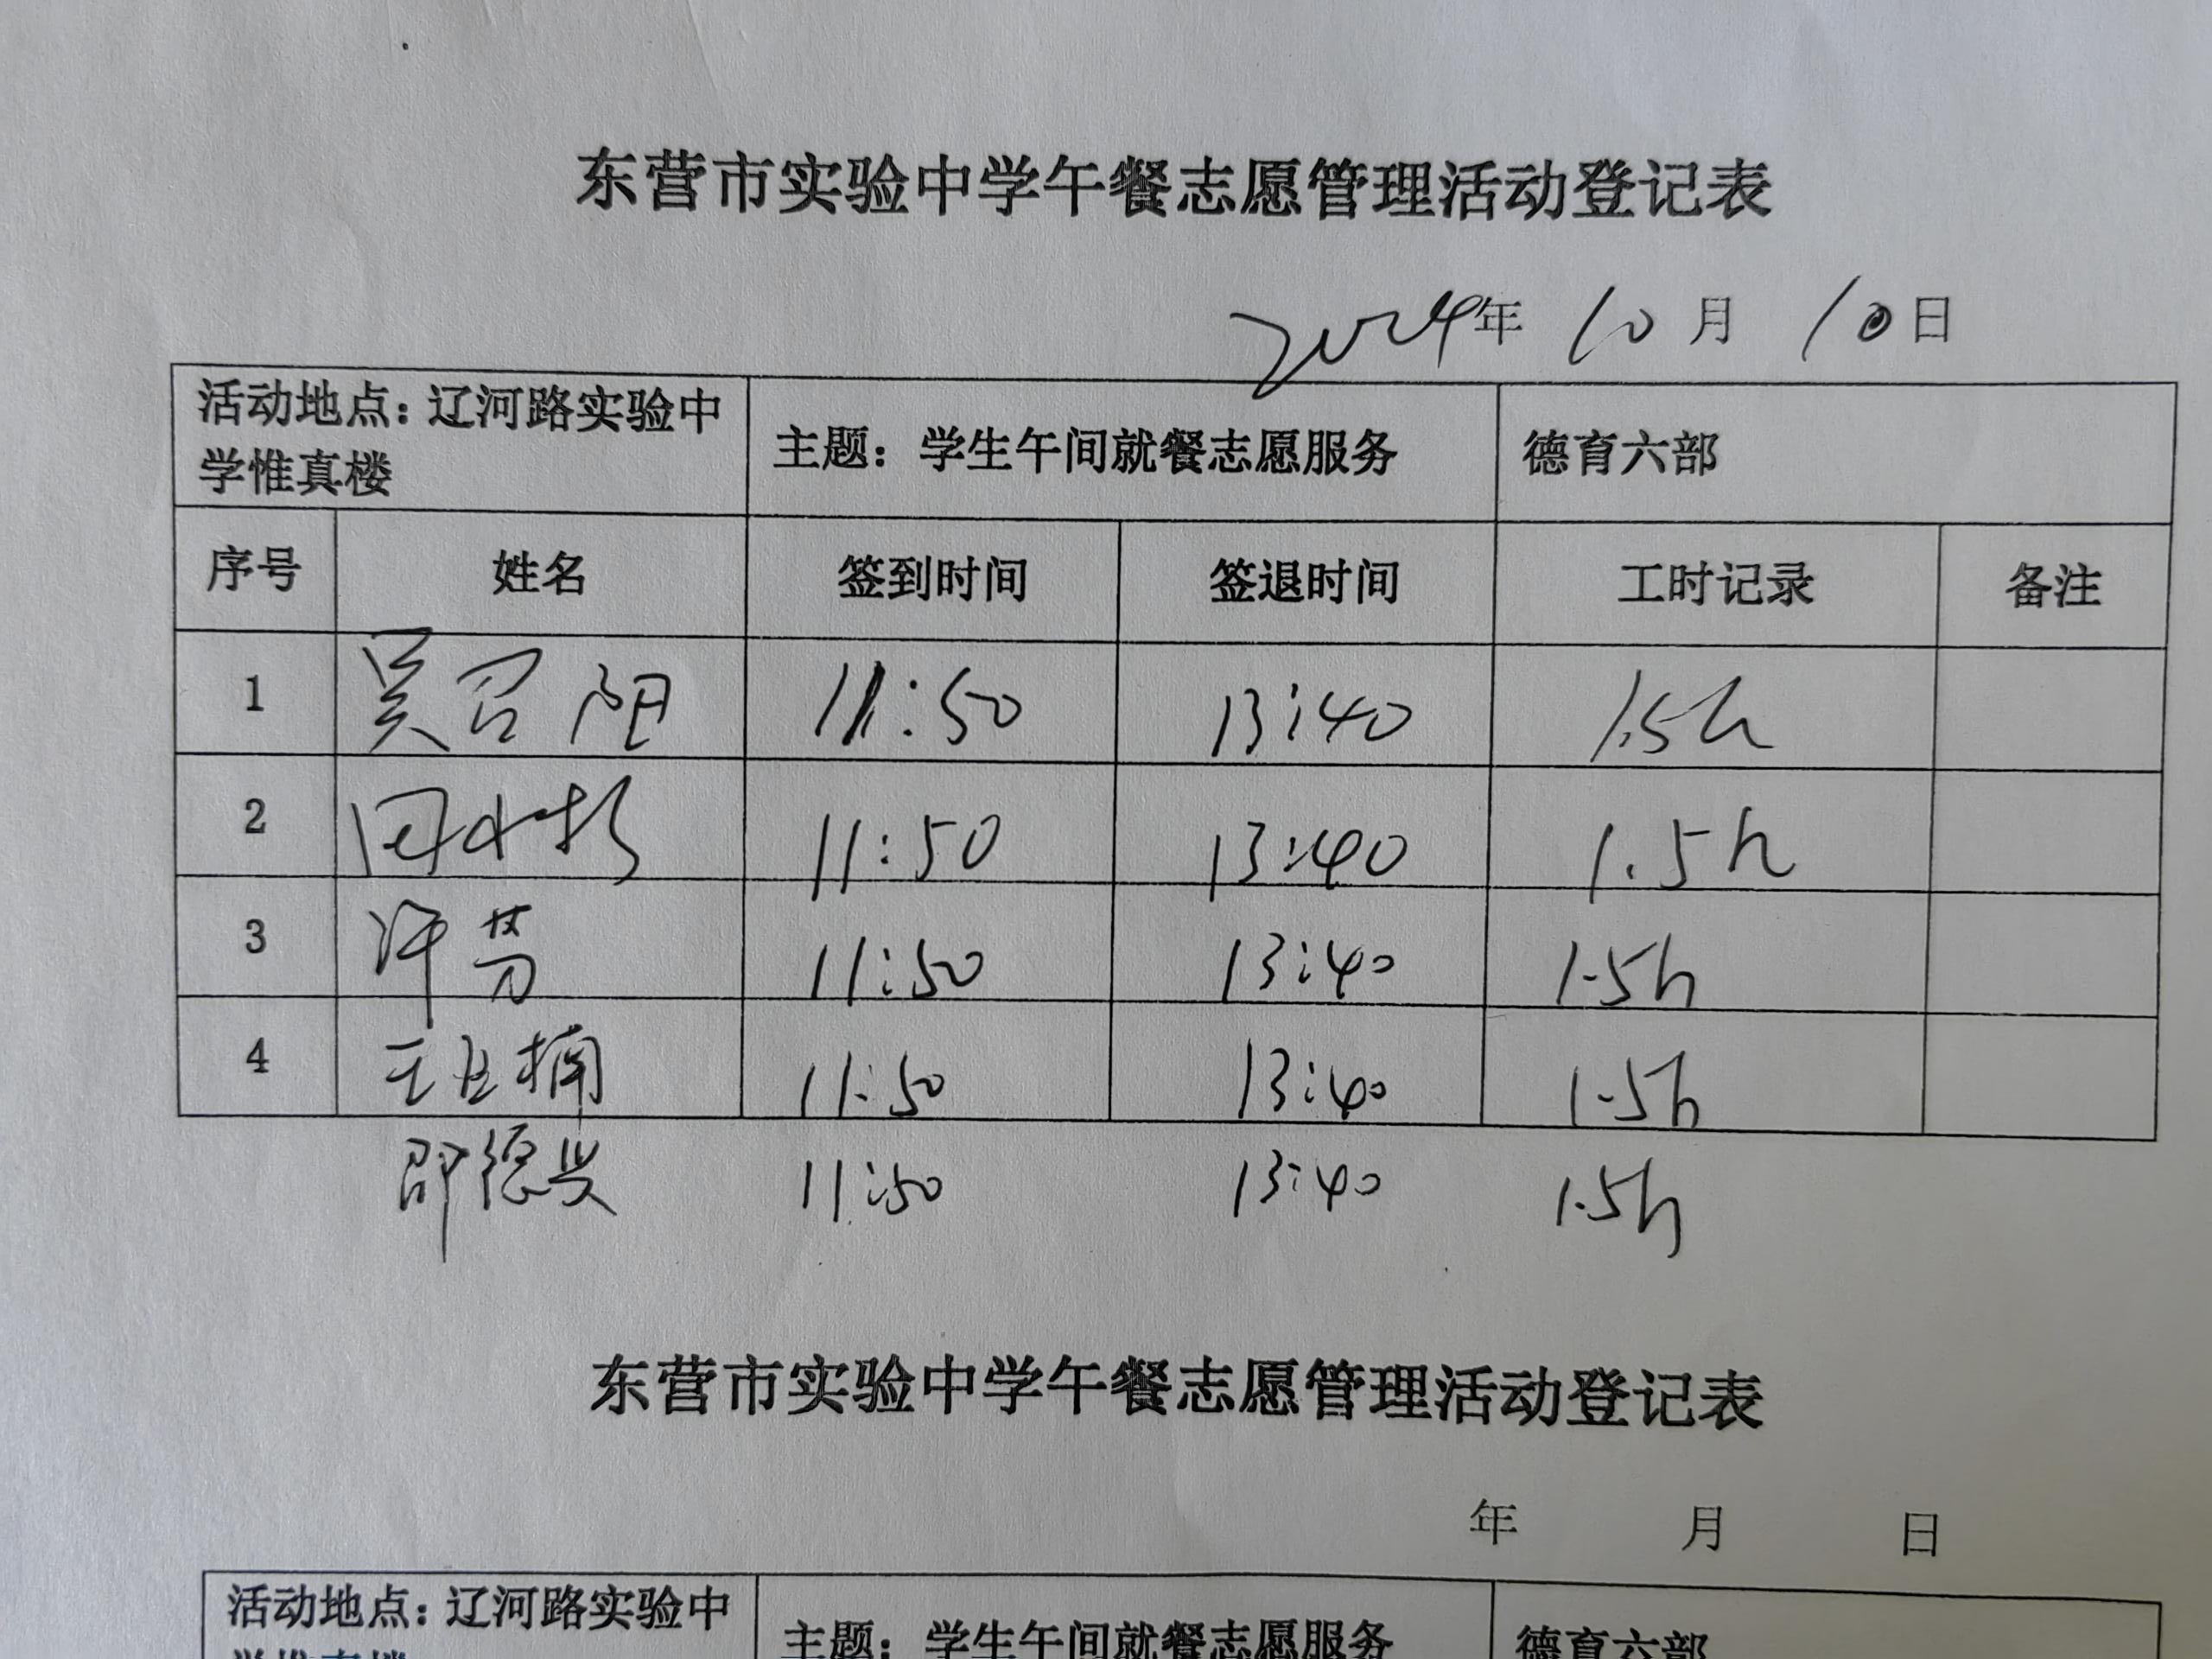 东营市实验中学午餐志愿管理活动登记表
2024年 10月 10日
活动地点：辽河路实验中
学惟真楼
主题：学生午间就餐志愿服务
德育六部
序号 姓名 签到时间 签退时间 工时记录 备注
1 吴召阳 11:50 13:40 1.5h
2 11:50 13:40 1.5h
3 许芳 11:50 13:40 1.5h
4 11:50 13:40 1.5h
邵德兴 11:50 13:40 1.5h
东营市实验中学午餐志愿管理活动登记表
年 月 日
活动地点：辽河路实验中
学惟真楼
主题：学生午间就餐志愿服务
德育六部